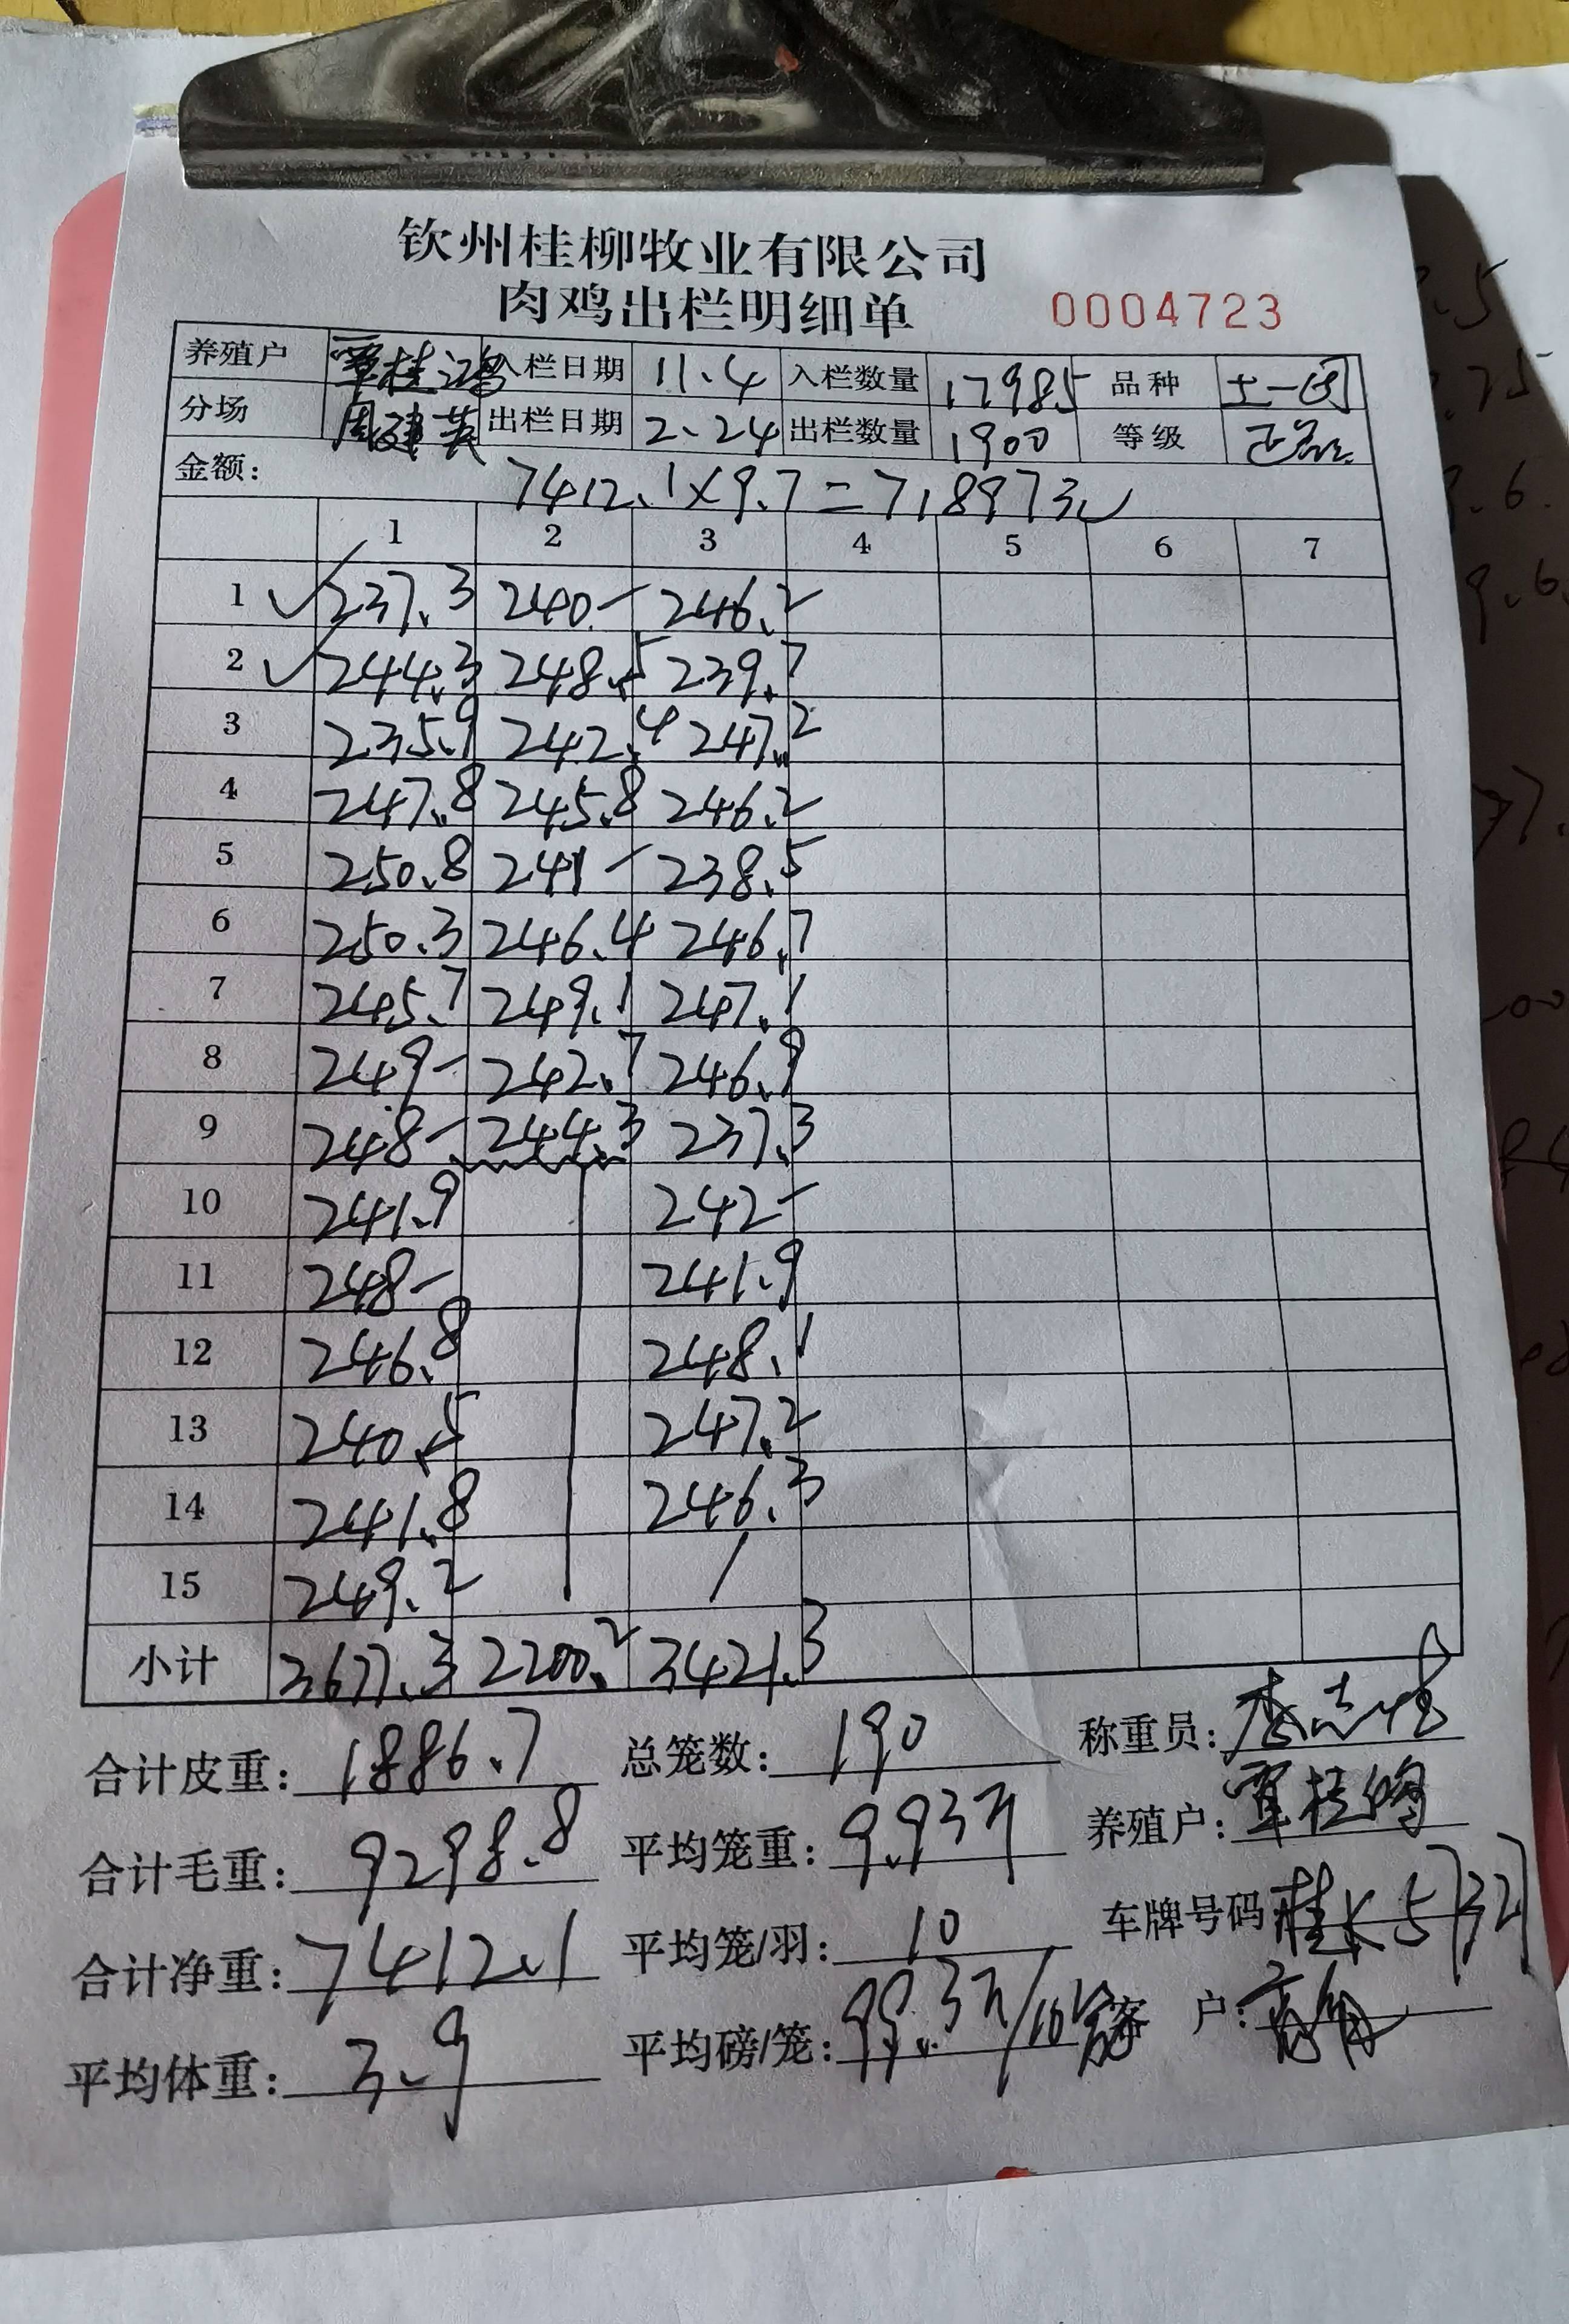 钦州桂柳牧业有限公司
肉鸡出栏明细单 0004723
养殖户 覃桂鸿 入栏日期 11.4 入栏数量 17985 品种 土一
分场 周建英 出栏日期 2.24 出栏数量 1900 等级 正品
金额: 7412.1×9.7=71897.3
1 2 3 4 5 6 7
1 237.3 240- 246.2
2 244.3 248.5 239.7
3 235.9 242.4 247.2
4 247.8 245.8 246.2
5 250.8 241- 238.5
6 250.3 246.4 246.7
7 245.7 249.1 247.1
8 249- 242.7 246.9
9 248- 244.3 237.3
10 241.9 242-
11 248- 241.9
12 246.8 248.1
13 240.5 247.2
14 241.8 246.3
15 249.2 /
小计 3677.3 2200.2 3421.3
合计皮重: 1886.7 总笼数: 190 称重员:
合计毛重: 9298.8 平均笼重: 9.93斤 养殖户: 覃桂鸿
合计净重: 7412.1 平均笼/羽: 10 车牌号码 桂K5732
平均体重: 3.9 平均磅/笼: 99.3斤/10 客 户: